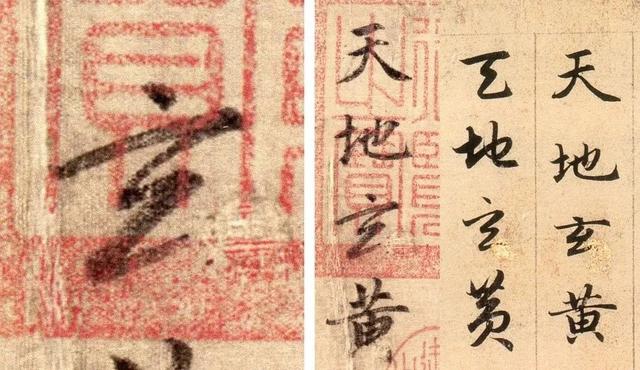 玄
天地玄黄
天地玄黄
天地玄黄